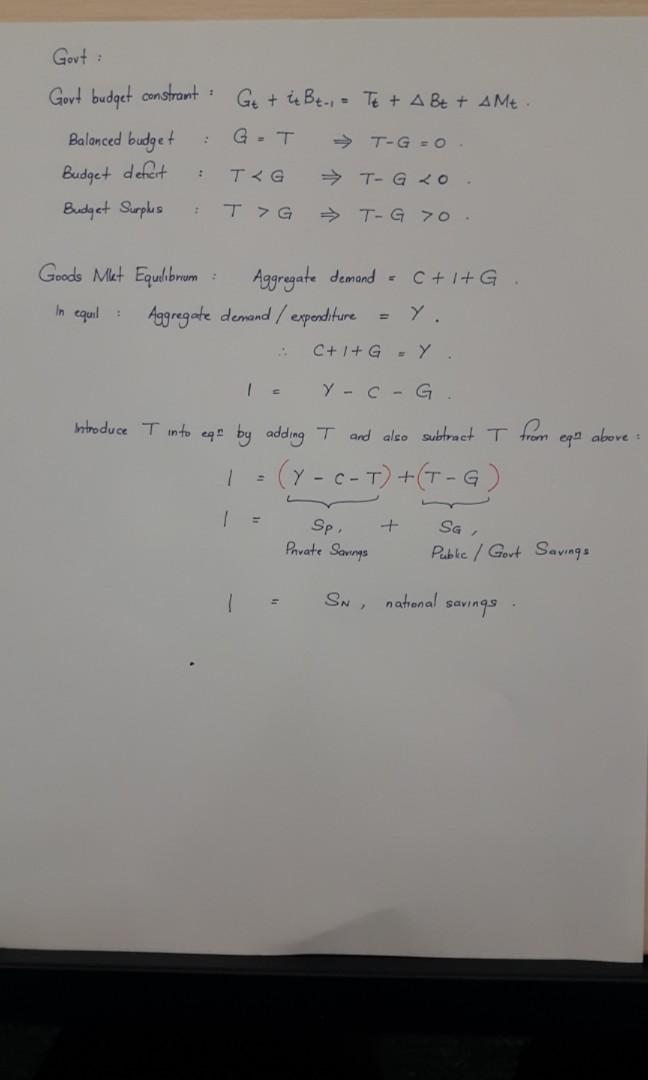 Govt :
Govt budget constrant : Gt + it Bt-1 = Tt + Δ Bt + Δ Mt .
Balanced budget : G = T ⇒ T-G = 0 .
Budget deficit : T < G ⇒ T- G < 0 .
Budget Surplus : T > G ⇒ T- G > 0 .
Goods Mkt Equilibrium : Aggregate demand = C + I + G .
In equil : Aggregate demand / expenditure = Y .
∴ C + I + G = Y .
I = Y - C - G .
Introduce T into eqn by adding T and also subtract T from eqn above :
I = (Y - C - T) + (T - G)
I = SP, + SG,
Private Savings Public / Govt Savings
I = SN, national savings .